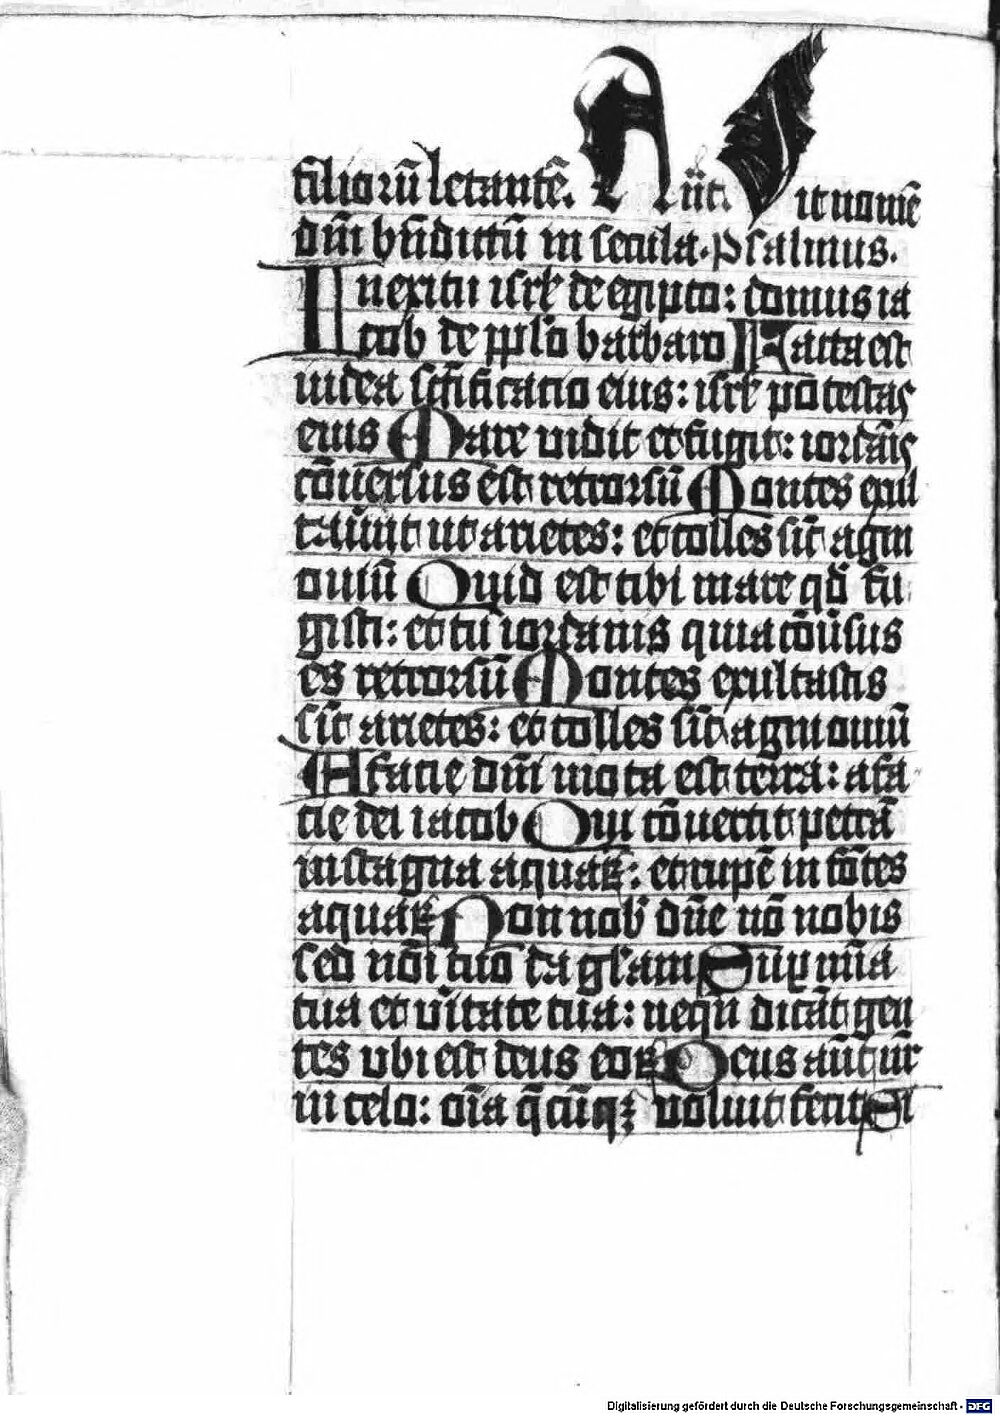 filiorū letantē. A Añt. Sit nomē
dm̄i bn̄dictū in secula. Psalmus.
In exitu isrl̄ de egipto: domus ia
cob de pplo barbaro Facta est
iudea sc̄ificatio eius: isrl̄ potestas
eius Mare vidit et fugit: iordāis
cōuersus est retrorsū Montes exul
tauer̄t ut arietes: et colles sic̄ agni
ouiū Quid est tibi mare qd̄ fu
gisti: et tu iordanis quia cōu̅sus
es retrorsū Montes exultastis
sic̄ arietes: et colles sic̄ agni ouiū
A facie dm̄i mota est terra: a fa
cie dei iacob Qui cōuertit petrā
in stagna aquaꝝ: et rupē in fōtes
aquaꝝ Non nob̄ dn̄e nō nobis
sed nōi tuo da gl̄am Sup mīa
tua et v̄itate tua: neqn̄ dicāt gen
tes ubi est deus eoꝝ Deus aūt nr̄
in celo: oīa q̄cūqꝫ voluit fecit Si
Digitalisierung gefördert durch die Deutsche Forschungsgemeinschaft - DFG